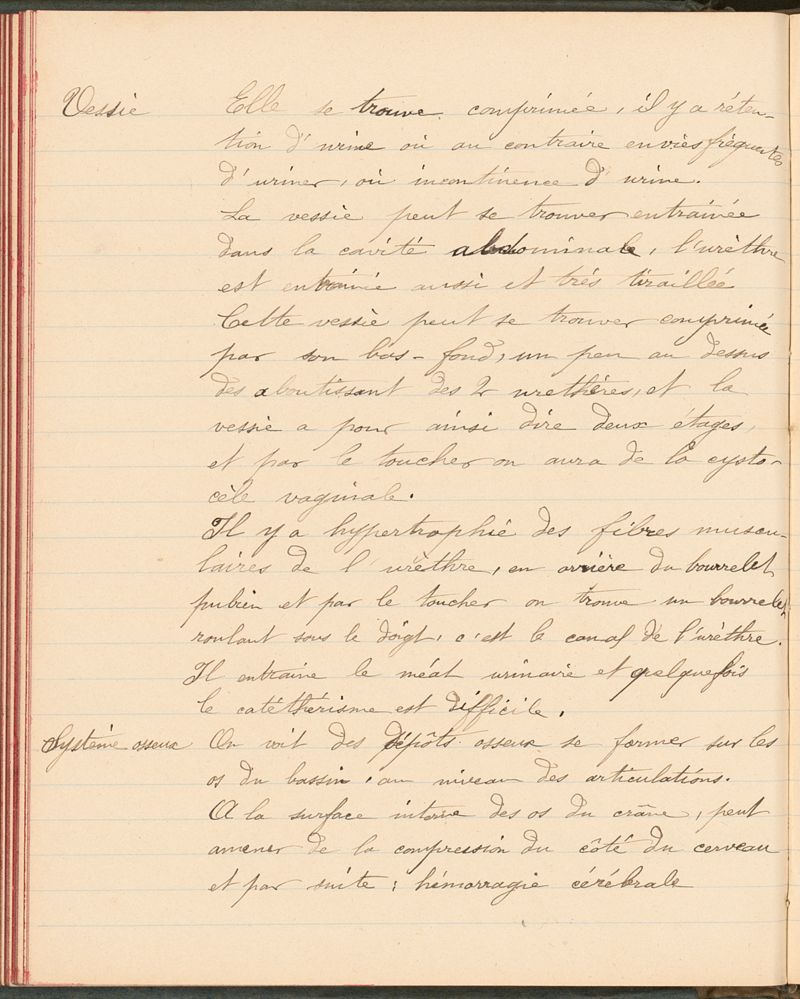 Vessie Elle se trouve comprimée, il y a réten-
tion d'urine où au contraire envies fréquentes
d'uriner, où incontinence d'urine.
La vessie peut se trouver entrainée
dans la cavité abdominale, l'urèthre
est entrainé aussi et très tiraillée
Cette vessie peut se trouver comprimée
par son bas-fond, un peu au dessus
des aboutissant des 2 urethères, et la
vessie a pour ainsi dire deux étages,
et par le toucher on aura de la cysto-
cèle vaginale.
Il y a hypertrophie des fibres muscu-
laires de l'urèthre, en arrière du bourrelet
pubien et par le toucher on trouve un bourrelet
roulant sous le doigt, c'est le canal de l'urèthre.
Il entraine le méat urinaire et quelquefois
le catéthérisme est difficile.
Système osseux On voit des dépôts osseux se former sur les
os du bassin, au niveau des articulations.
A la surface interne des os du crâne, peut
amener de la compression du côté du cerveau
et par suite : hémorragie cérébrale